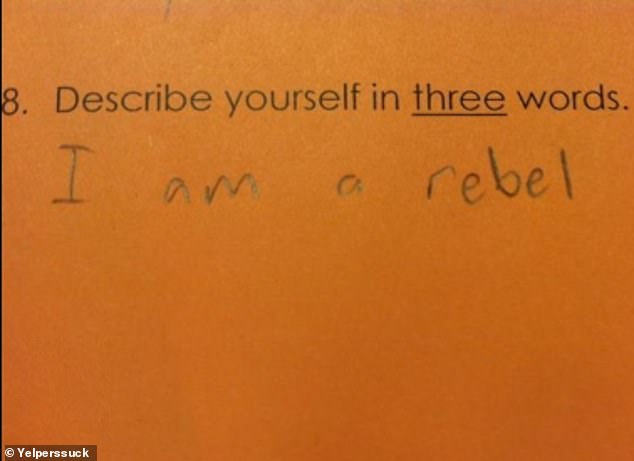 8. Describe yourself in three words.
I am a rebel
© Yelperssuck